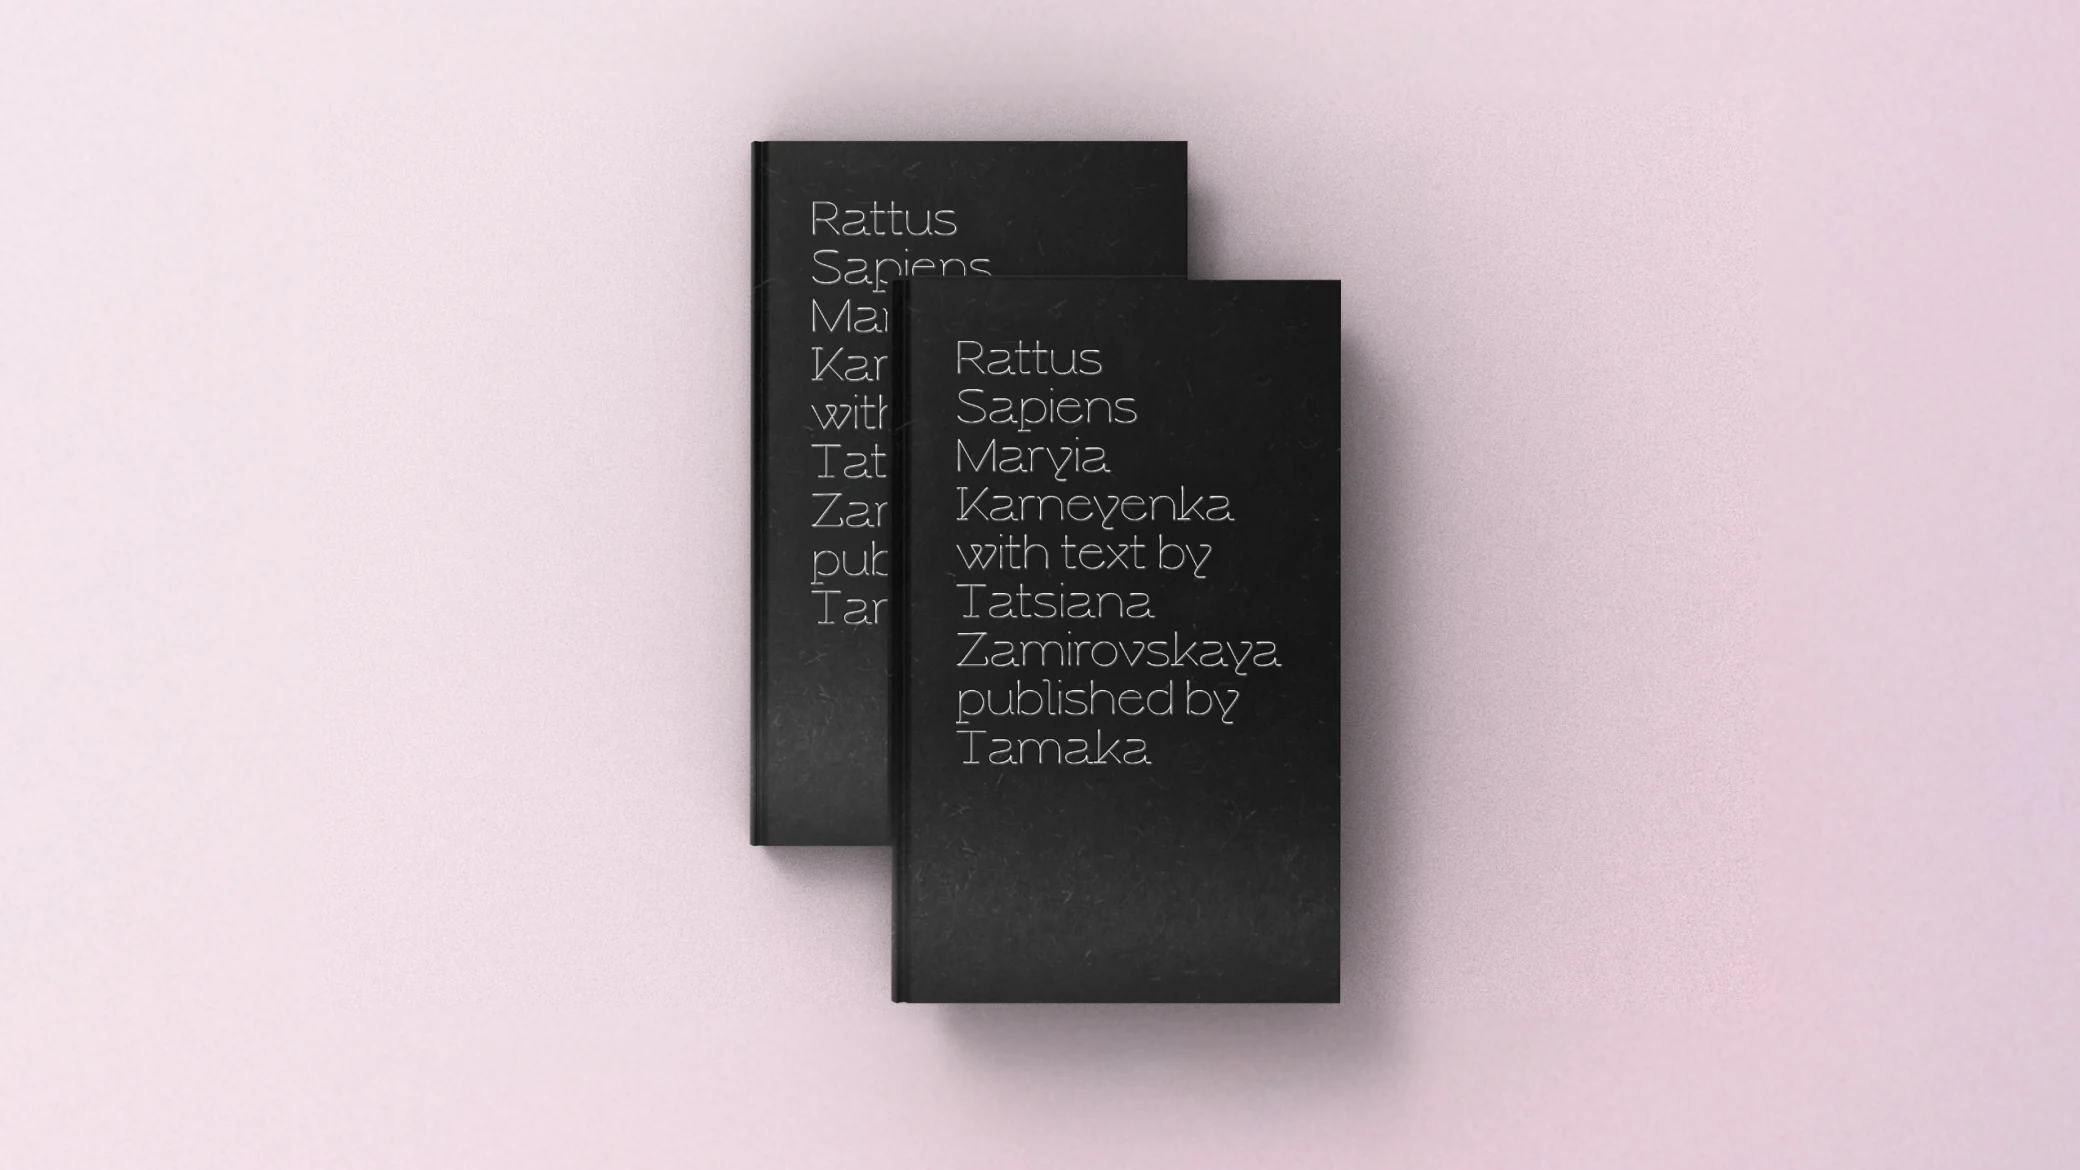 Rattus
Sapiens
Mar
Kar
with
Tat
Zar
pub
Tar
Rattus
Sapiens
Maryia
Karneyenka
with text by
Tatsiana
Zamirovskaya
published by
Tamaka